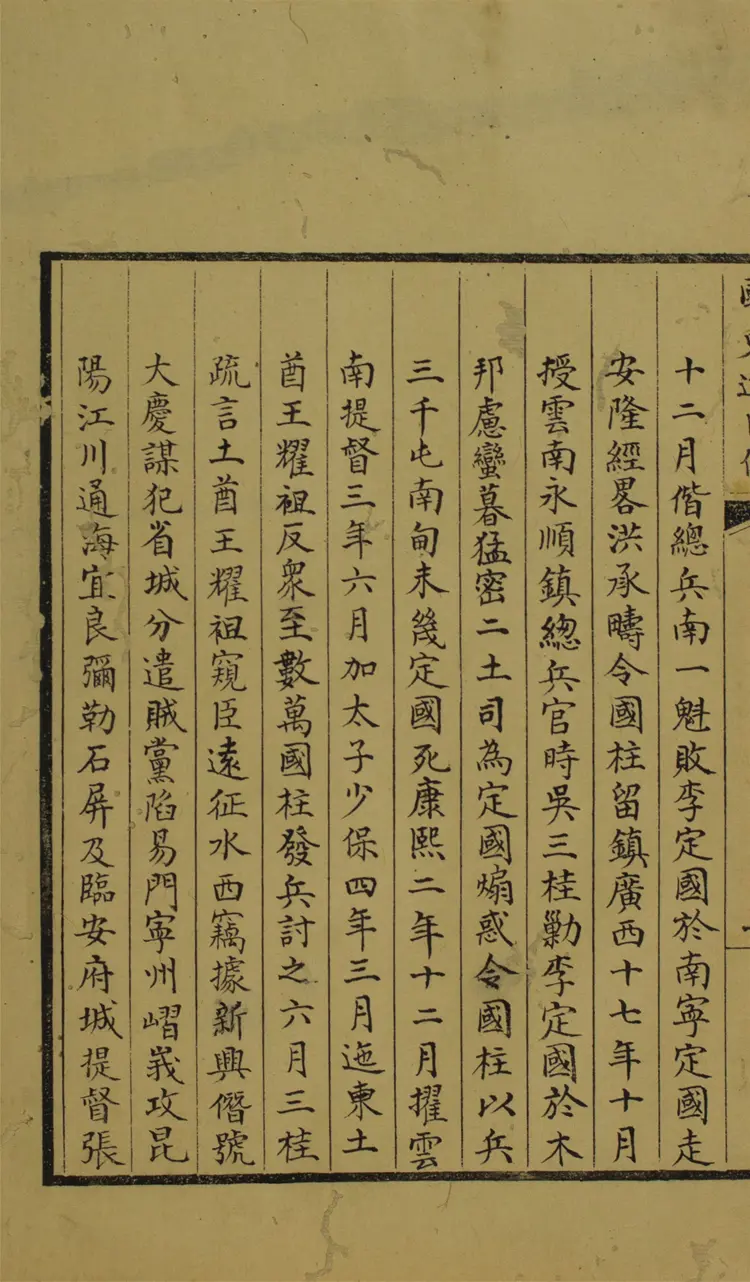 十二月偕總兵南一魁敗李定國於南寧定國走
安隆經畧洪承疇令國柱留鎮廣西十七年十月
授雲南永順鎮總兵官時吳三桂勦李定國於木
邦慮蠻暮猛密二土司為定國煽惑令國柱以兵
三千屯南甸未幾定國死康熙二年十二月擢雲
南提督三年六月加太子少保四年三月迤東土
酋王耀祖反衆至數萬國柱發兵討之六月三桂
疏言土酋王耀祖窺臣遠征水西竊據新興僭號
大慶謀犯省城分遣賊黨陷易門寧州嶍峩攻昆
陽江川通海宜良彌勒石屏及臨安府城提督張